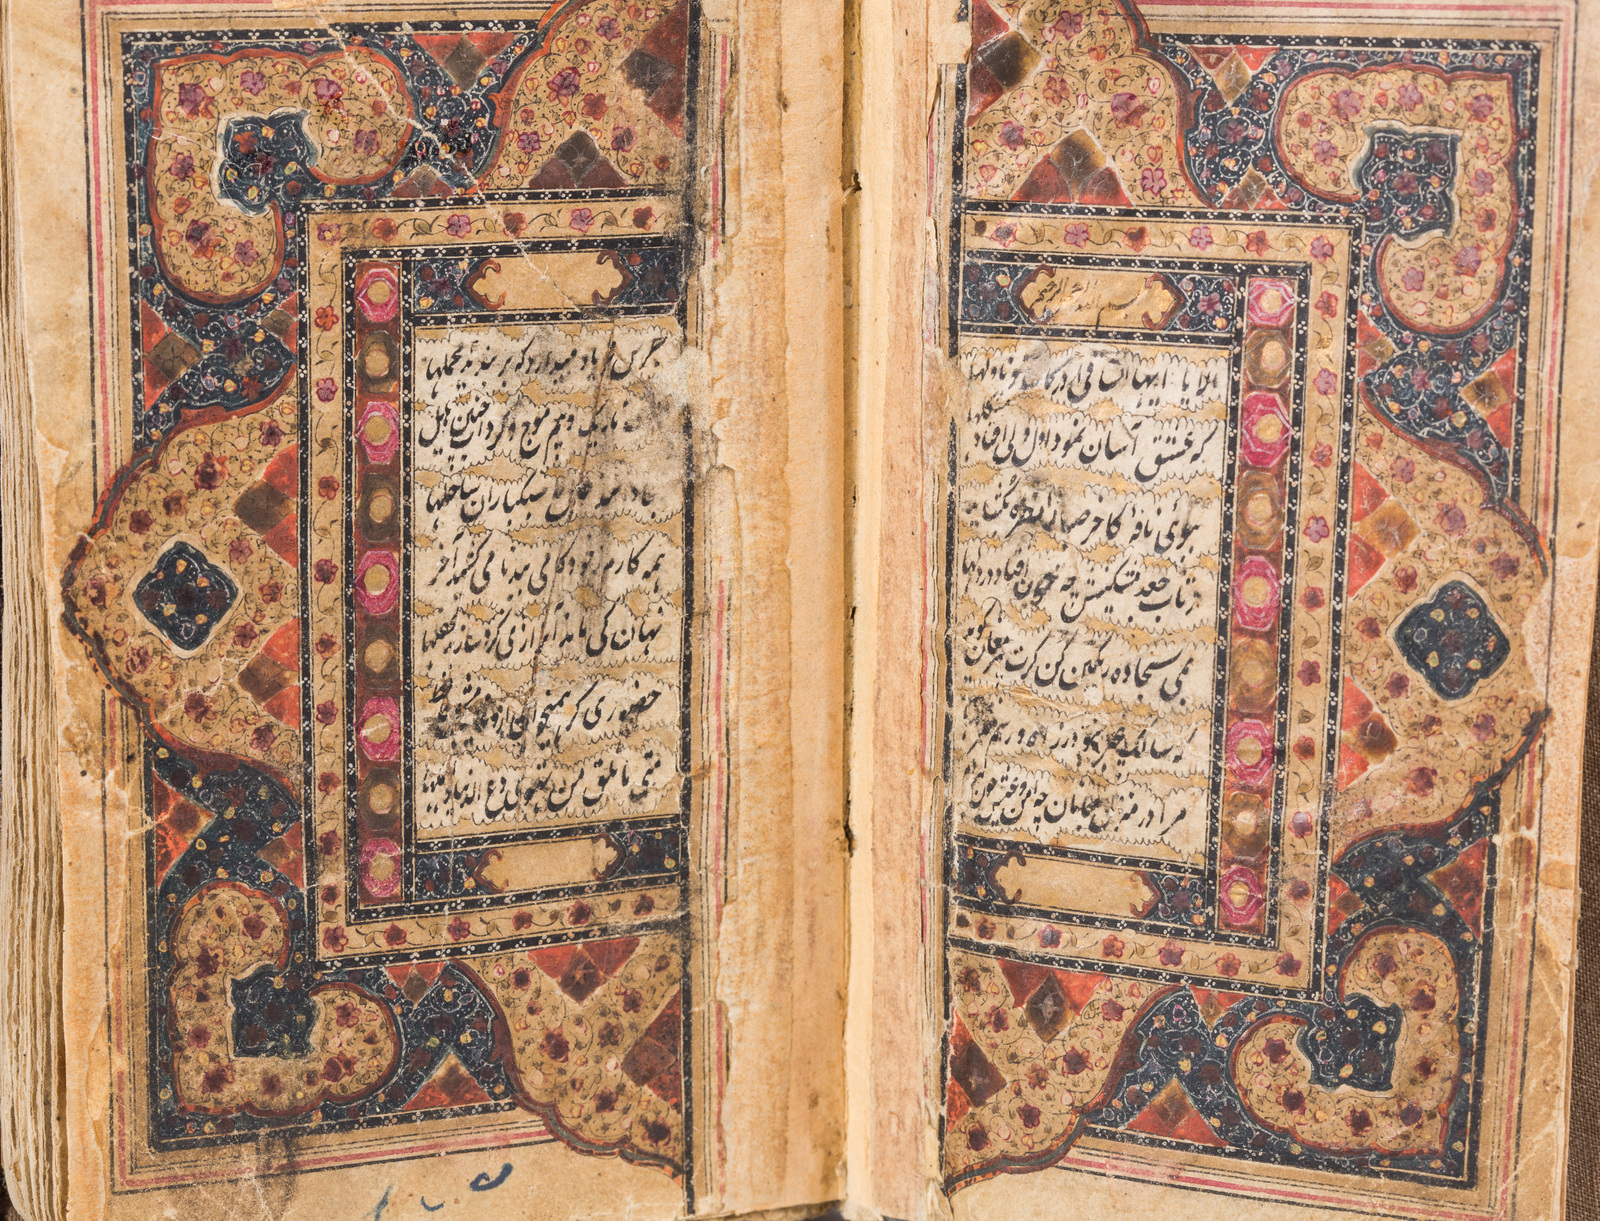 بسم الله الرحمن الرحیم
الا یا ایها الساقی ادر کاسا و ناولها
که عشق آسان نمود اول ولی افتاد مشکلها
ببوئی نافهٔ کاخر صبا زان طره بگشاید
ز تاب جعد مشکینش چه خون افتاد در دلها
بمی سجاده رنگین کن گرت پیر مغان گوید
که سالک بیخبر نبود ز راه و رسم منزلها
مرا در منزل جانان چه امن و عیش چون
جرس فریاد میدارد که بربندید محملها
تاریک و بیم موج و گردابی چنین هایل
حال ما سبکباران ساحلها
همه کارم ز خود کامی ببدنامی کشید آخر
نهان کی ماند آن رازی کزو سازند محفلها
حضوری گر همیخواهی ازو مشو حافظ
متی ما تلق من تهوی دع الدنیا و اهملها